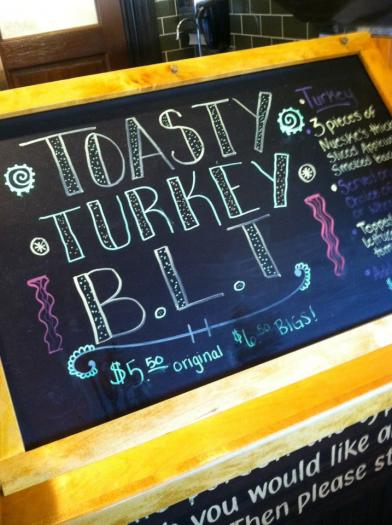 TOASTY
TURKEY
B.L.T
$5.50 original $6.50 BIGS!
Turkey
3 pieces of
Nueske's
Sliced
Smoked
Served on
Topped
you would like a
then please st